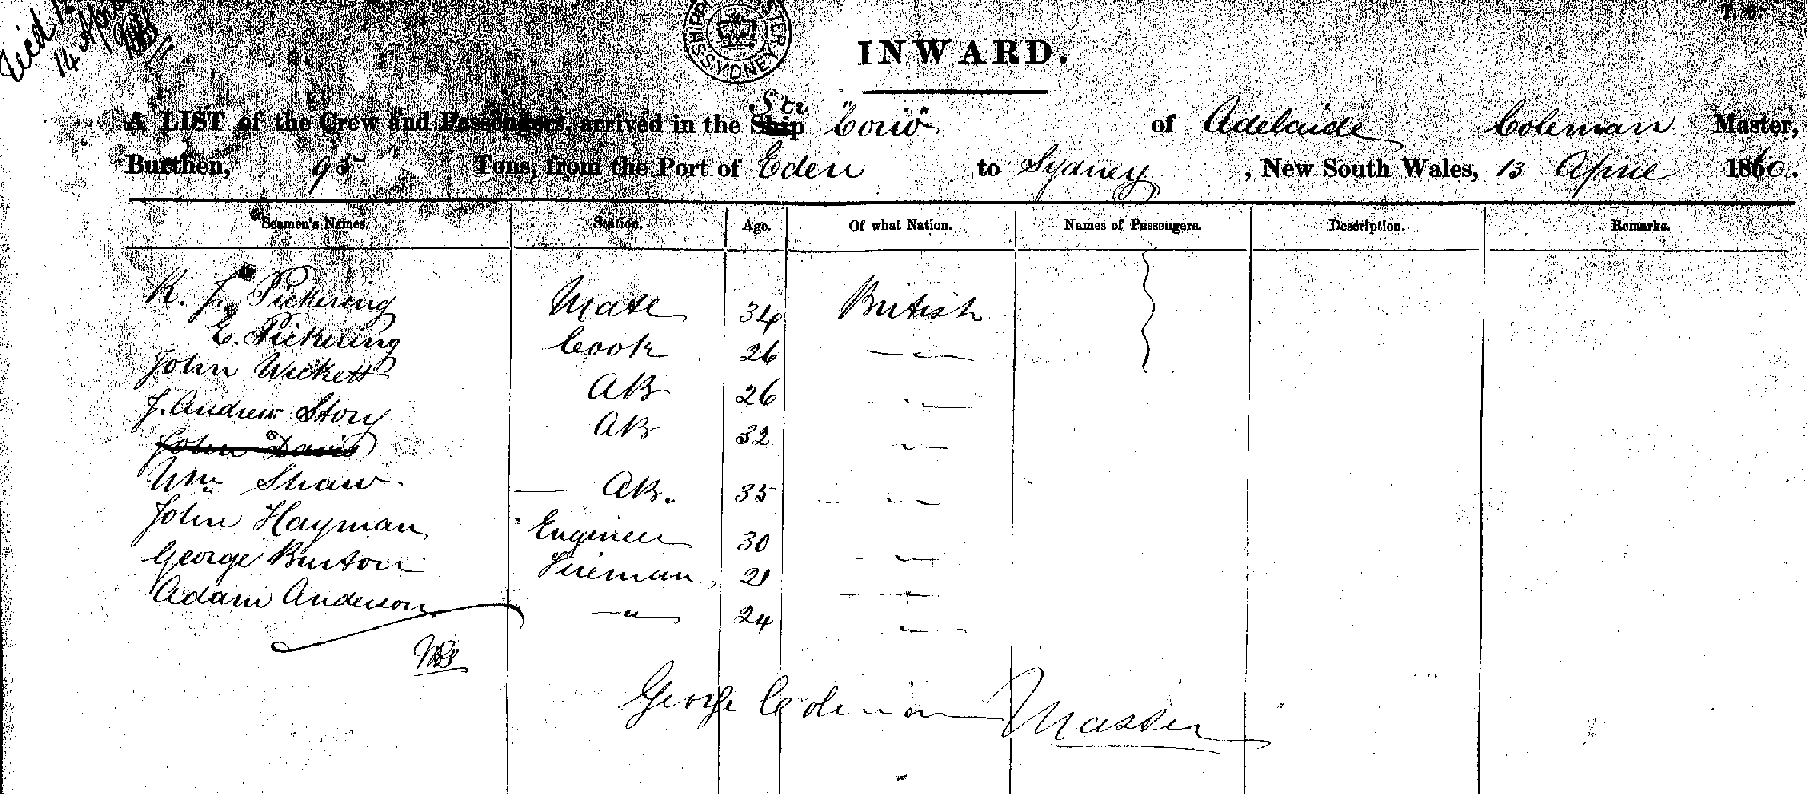 14 Apl
SYDNEY
INWARD.
Str
A LIST of the Crew and Passengers, arrived in the Ship "Corio" of Adelaide Coleman Master,
Burthen, 95 Tons, from the Port of Eden to Sydney, New South Wales, 13 April 1860.
Seamen's Names. Station. Age. Of what Nation. Names of Passengers. Description. Remarks.
K. J. Pickering Mate 34 British
E. Pickering Cook 26 — " —
John Wickett AB 26 " —
J. Andrew Story AB 32 "
John Davis
Wm Shaw — AB. 35 - " -
John Hayman Engineer 30 "
George Burton Fireman 21 — " —
Adam Anderson — " — 24 " —
George Coleman Master